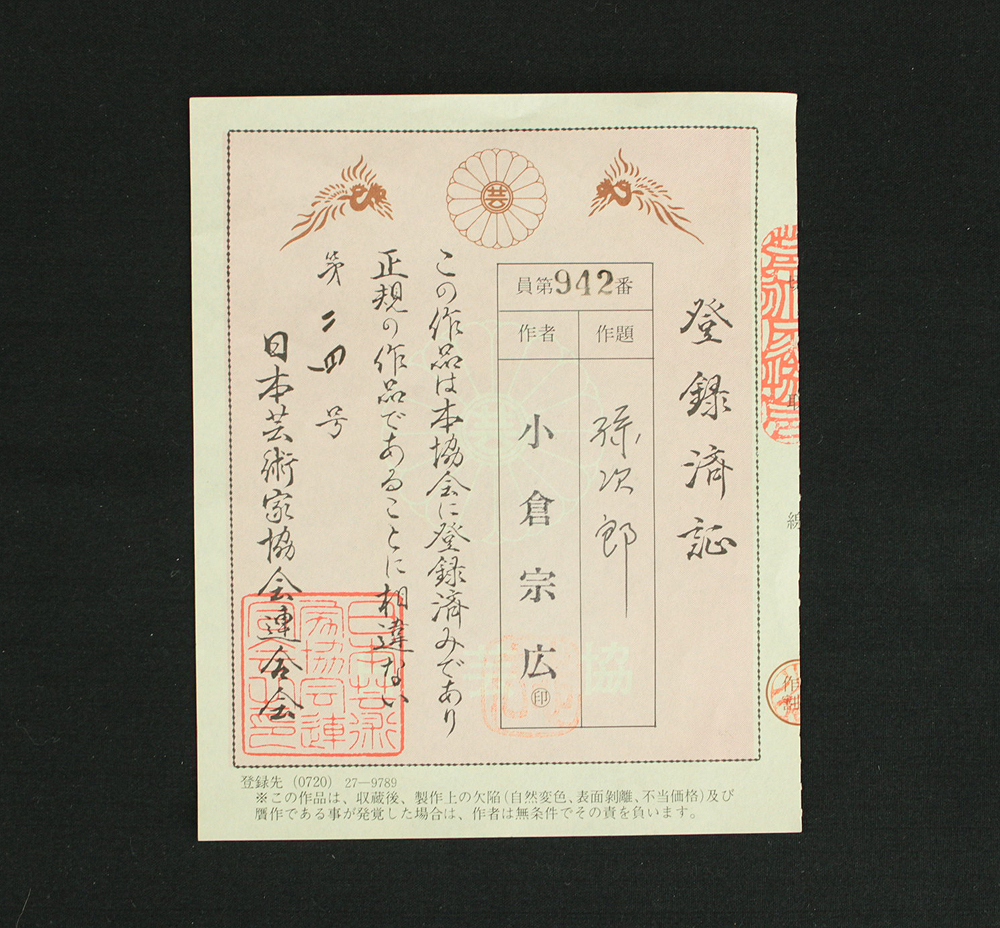 登録済証
員第942番
作題
弥次郎
作者
小倉宗広
印
この作品は本協会に登録済みであり
正規の作品であることに相違ない
第二四号
日本芸術家協会連合会
芸
登録先 (0720) 27―9789
※この作品は、収蔵後、製作上の欠陥(自然変色、表面剥離、不当価格)及び
贋作である事が発覚した場合は、作者は無条件でその責を負います。